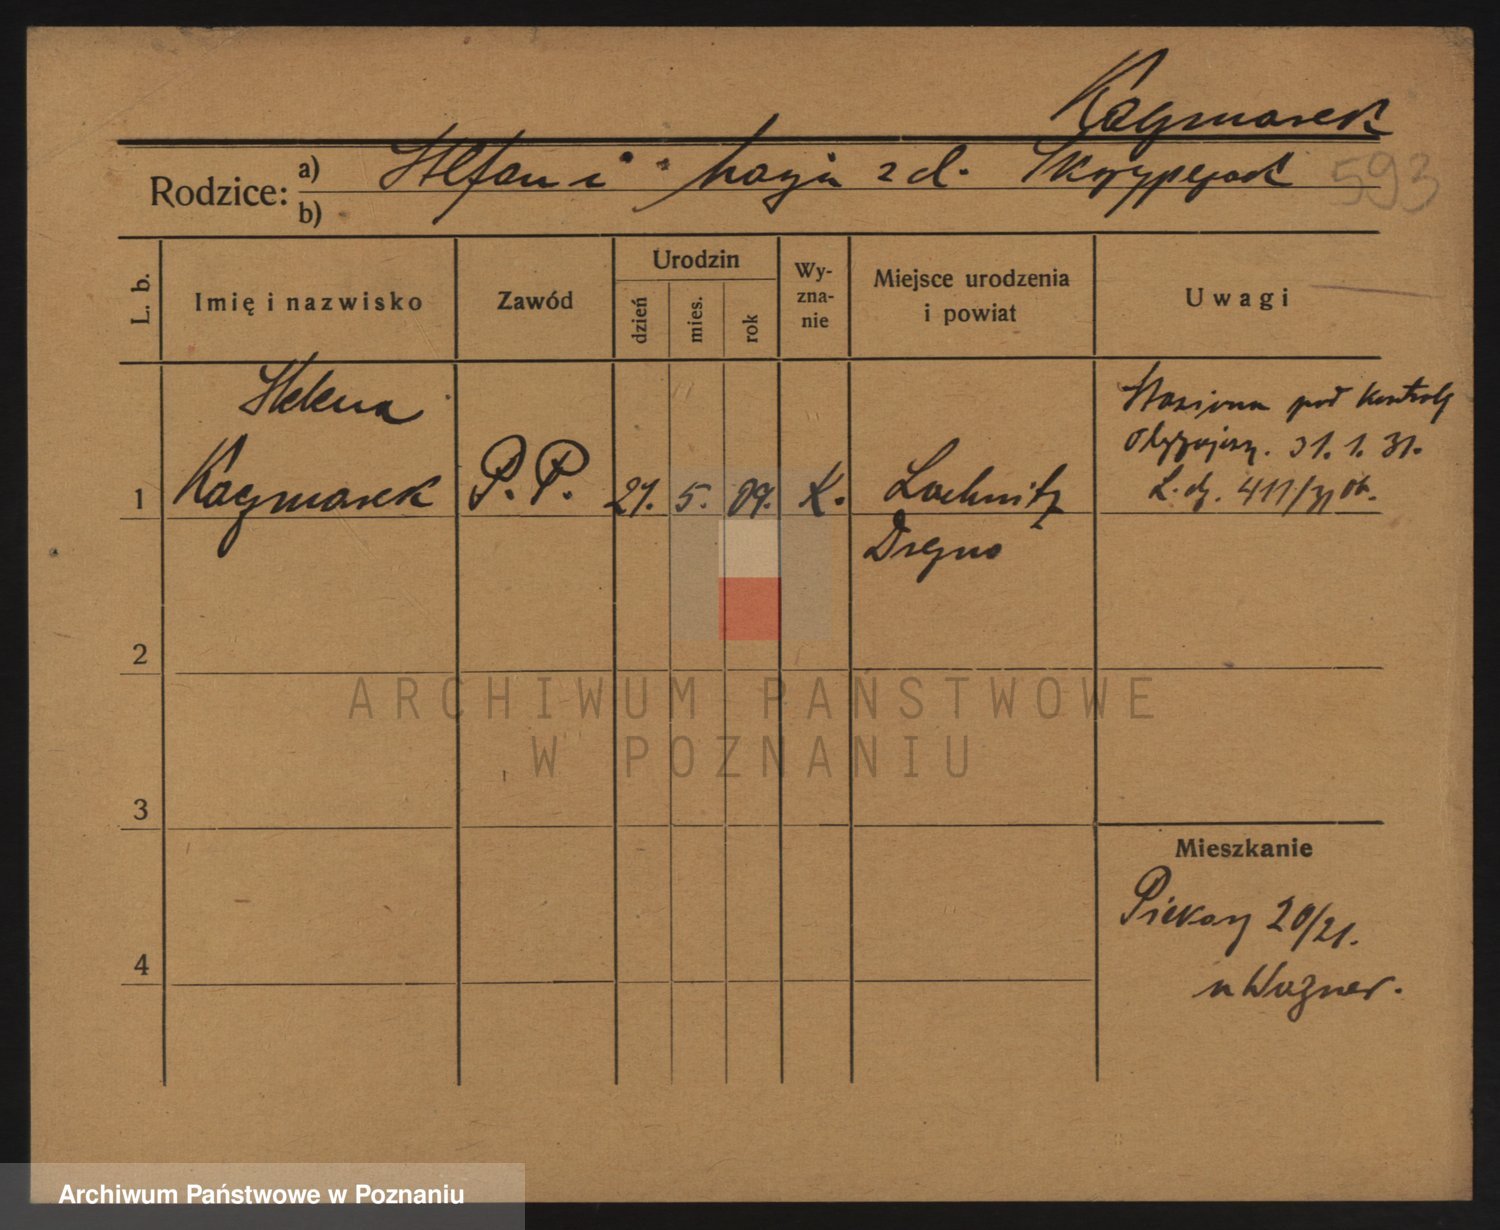 Kaczmarek
Rodzice: a) Stefan i Marja z d.
593
b)
L. b.
Imię i nazwisko
Zawód
Urodzin
dzień
mies.
rok
Wy-
zna-
nie
Miejsce urodzenia
i powiat
Uwagi
Helena
1 Kaczmarek P.P. 21. 5. 09. K.
Drezno
pod kontrolę
obyczajową. 31. 1. 31.
L. dz. 411/31 Ob.
2
3
4
Mieszkanie
Piekary 20/21.
u Wagner.
ARCHIWUM PAŃSTWOWE
W POZNANIU
Archiwum Państwowe w Poznaniu